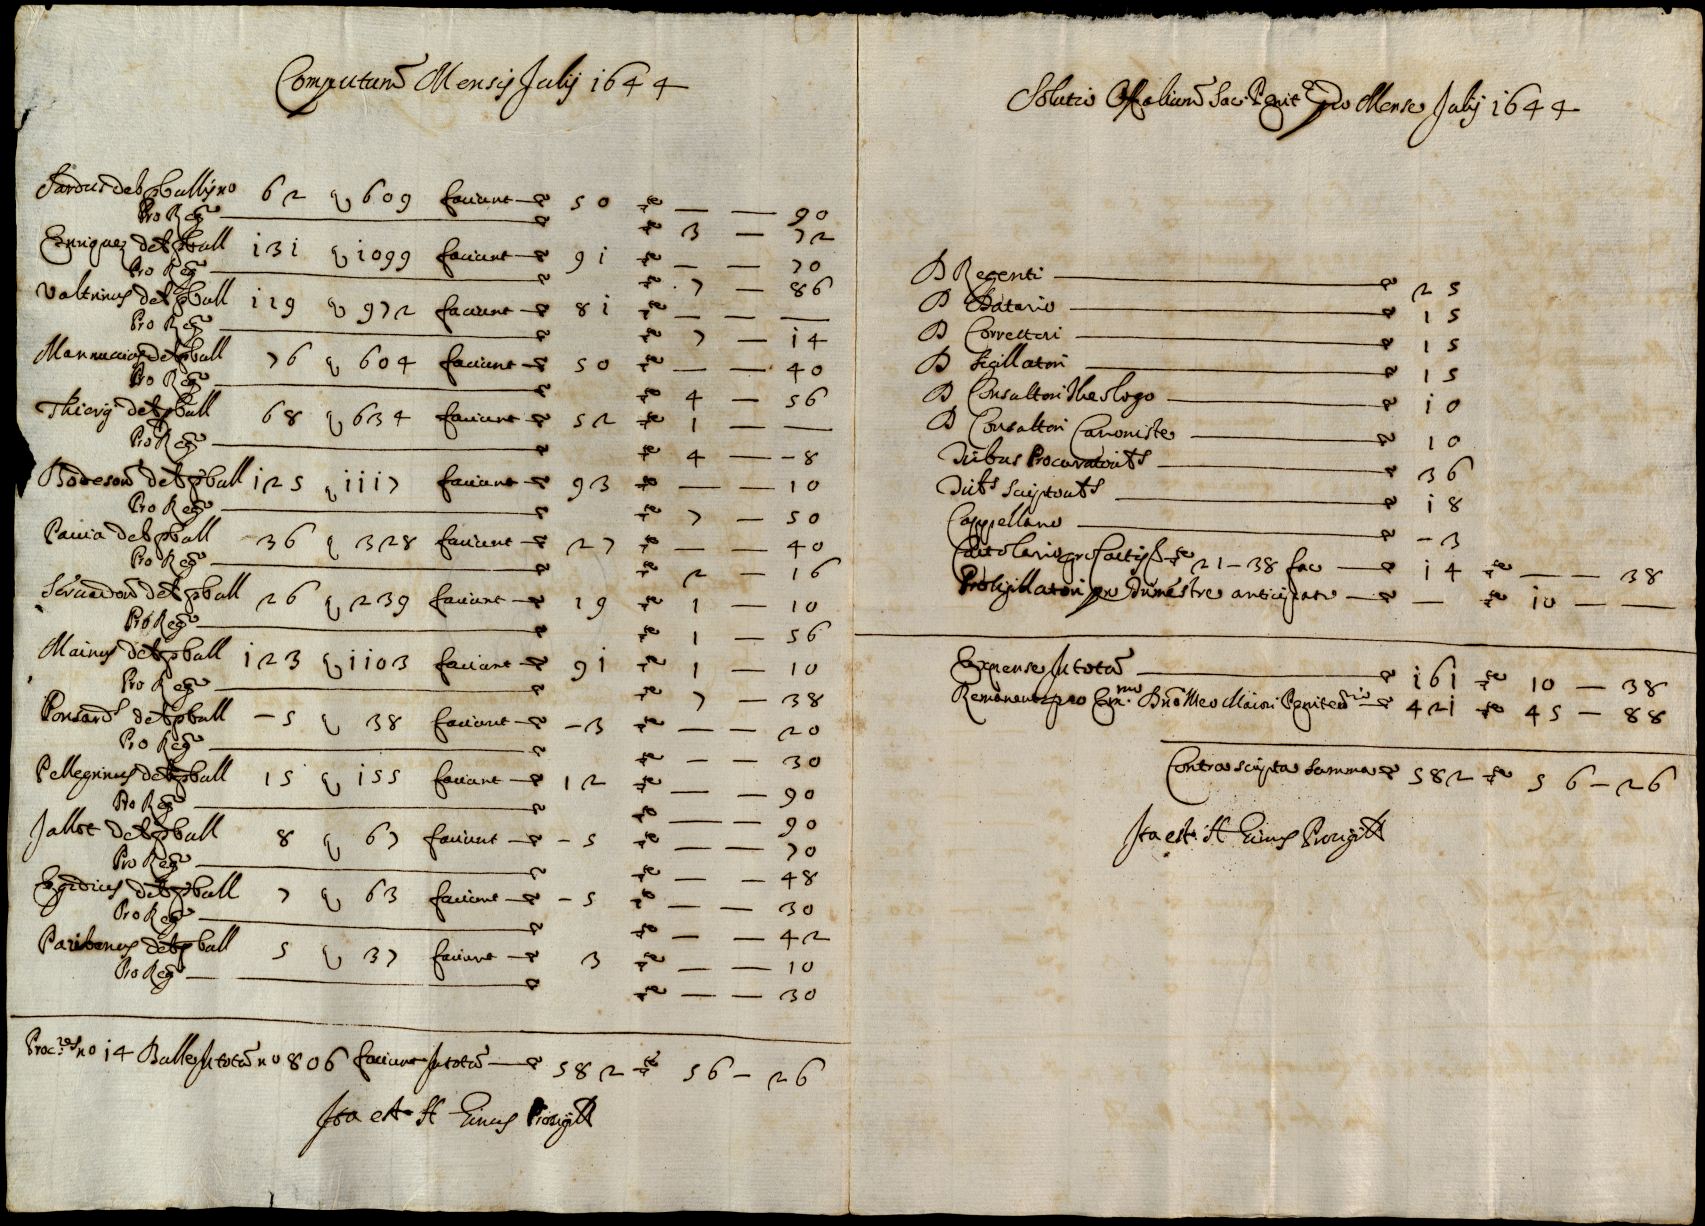 Computum Mensis Julij 1644
Sardus debet pro bullis no 62 q 609 faciunt 50 — — 90
Pro Reg 3 — 72
Enriquez debet pro bull 131 q 1099 faciunt 91 — — 70
Pro Reg 7 — 86
Valtrinus debet pro bull 119 q 972 faciunt 81 — — —
Pro Reg 7 — 14
Mannucius debet pro bull 76 q 604 faciunt 50 — — 40
Pro Reg 4 — 56
Thierig debet pro bull 68 q 634 faciunt 52 1 — —
Pro Reg 4 — -8
Bodeson debet pro bull 125 q 1117 faciunt 93 — — 10
Pro Reg 7 — 50
Pauia debet pro bull 36 q 328 faciunt 27 — — 40
Pro Reg 2 — 16
debet pro bull 26 q 239 faciunt 19 1 — 10
Pro Reg 1 — 56
Mainus debet pro bull 123 q 1103 faciunt 91 1 — 10
Pro Reg 7 — 38
Ponsard debet pro bull -5 q 38 faciunt -3 — — 20
Pro Reg — — 30
Pellegrinus debet pro bull 15 q 155 faciunt 12 — — 90
Pro Reg — — 90
Jallot debet pro bull 8 q 67 faciunt -5 — — 70
Pro Reg — — 48
Egidius debet pro bull 7 q 63 faciunt -5 — — 30
Pro Reg — — 42
Paribenus debet pro bull 5 q 37 faciunt 3 — — 10
Pro Reg — — 30
Procres no 14 Bulle In totum no 806 faciunt In totum 582 56 — 26
Ita est H
Solutio Offalium Sac. Penit. pro Mense Julij 1644
D Regenti 25
D Datario 15
D Correctori 15
D Sigillatori 15
D Consultori Theologo 10
D Consultori Canoniste 10
Duobus Procuratoribs 36
Duibs Scriptoribs 18
Cappellano -3
Cartolario pro Cartis 21-38 fac 14 — — 38
Prosigillatori pro Bimestre anticipato — 10 — —
Expense In totum 161 10 — 38
Remanent pro Emmo Dno Meo Maiori Penitenrio 421 45 — 88
Contrascripta Summa 582 56 — 26
Ita est H